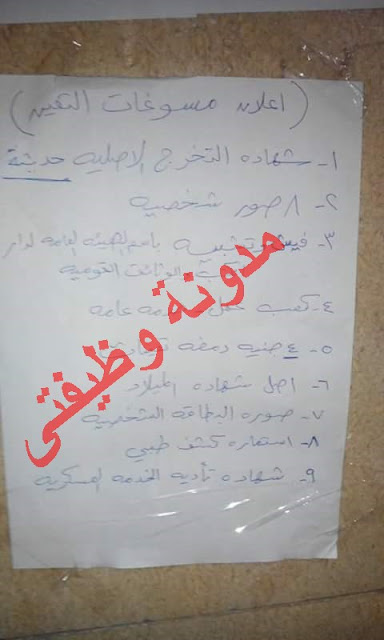 (اعلان مسوغات التعين)
١- شهاده التخرج الاصليه حديثة
٢- ٨ صور شخصيه
٣- فيش وتشبيه باسم الهيئه العامه لدار
الكتب والوثائق القوميه
٤- كعب عمل خدمه عامه
٥- ٤ جنيه دمغه
٦- اصل شهاده الميلاد
٧- صوره البطاقة الشخصية
٨- استماره كشف طبي
٩- شهاده تأديه الخدمه العسكريه
مدونة وظيفتى